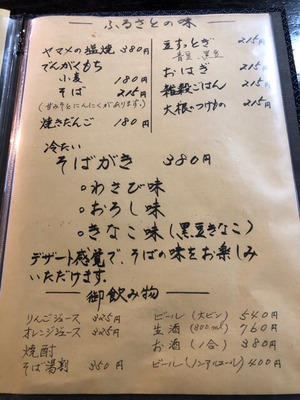 ふるさとの味
ヤマメの塩焼 380円
でんがくもち
小麦 180円
そば 215円
(甘みそとにんにくがあります。)
焼きだんご 180円
豆すっとぎ 215円
青豆 黒豆
おはぎ 215円
雑穀ごはん 215円
大根のつけもの 215円
冷たい
そばがき 380円
○わさび味
○おろし味
○きなこ味(黒豆きなこ)
デザート感覚で、そばの味をお楽しみ
いただけます。
御飲み物
りんごジュース 325円
オレンジジュース 325円
焼酎
そば湯割 350円
ビール(大ビン) 540円
生酒(300ml) 760円
お酒(1合) 380円
ビール(ノンアルコール) 400円